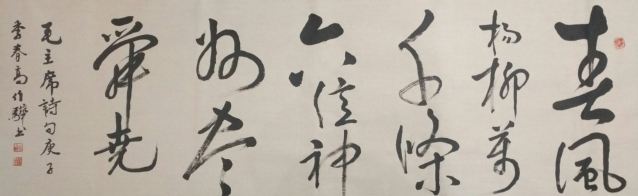 春風
杨柳萬
千條
六億神
州盡
舜堯
毛主席詩句庚子
季春高
书